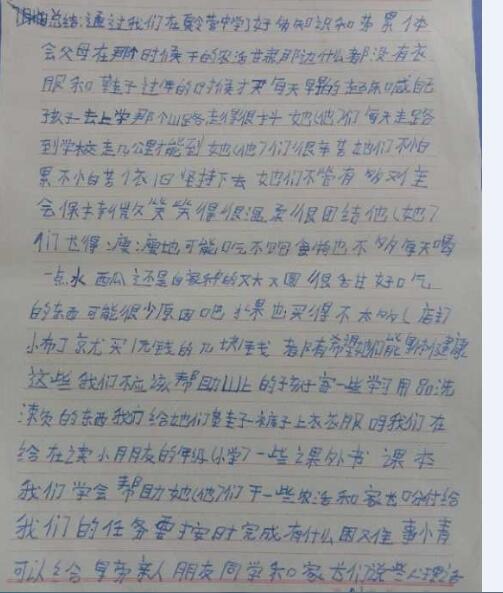 总结:通过我们在夏令营中学了好多知识和劳累体
会父母在那个时候干的农活甘肃那边什么都没有衣
服和鞋子过年的时候才买每天早晨起来喊自己
孩子去上学那个山路走得很抖她(他)们每天走路
到学校走几公里才能到她(他)们很辛苦她们不怕
累不怕苦依旧坚持下去她们不管有多对主
会保持微笑笑得很温柔很团结他(她)
们长得瘦瘦地可能吃不饱食物也不多每天喝
一点水西瓜还是自家种的又大又圆很香甘好吃
的东西可能很少原因吧水果也买得不太多(店
小布丁京尤买1元钱的几块钱都有希望她们能够健康
这些我们应该帮助山上的孩子寄一些学习用品洗
漱的东西我们给她们鞋子裤子上衣衣服呀我们在
给在读小朋友的年级(小学)一些课外书课本
我们学会帮助她(他)们干一些农活和家长吩咐给
我们的任务要按时完成有什么困难事小青
可以给身旁亲人朋友同学和家长们说些心理话